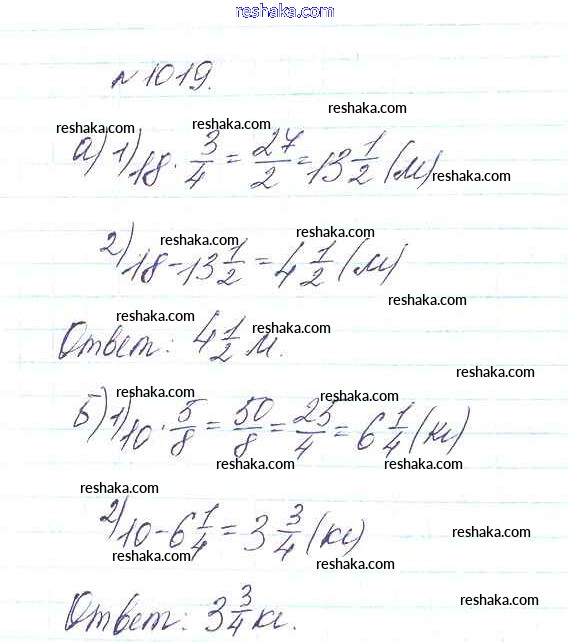 reshaka.com
№1019.
reshaka.com
reshaka.com
а) 1) 18 · 3/4 = 27/2 = 13 1/2 (м)
reshaka.com
reshaka.com
reshaka.com
reshaka.com
2) 18 - 13 1/2 = 4 1/2 (м)
reshaka.com
reshaka.com
reshaka.com
Ответ: 4 1/2 м.
reshaka.com
reshaka.com
reshaka.com
Б) 1) 10 · 5/8 = 50/8 = 25/4 = 6 1/4 (кг)
reshaka.com
reshaka.com
reshaka.com
2) 10 - 6 1/4 = 3 3/4 (кг)
reshaka.com
reshaka.com
reshaka.com
reshaka.com
Ответ: 3 3/4 кг.